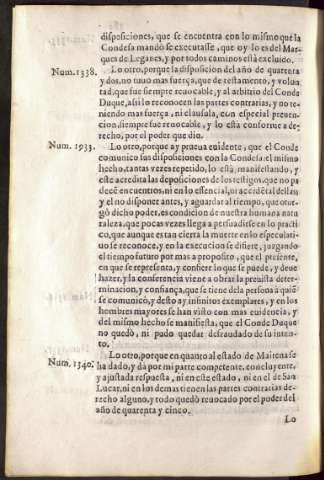 disposiciones, que se encuentra con lo mismo que la
Condesa mandò se executasse, que oy lo es del Mar-
ques de Leganes, y por todos caminos està excluido.
Num. 1338. Lo otro, porque la disposicion del año de quarenta
y dos, no tuuo mas fuerça, que de testamento, y volun
tad, que fue siempre reuocable, y al arbitrio del Conde
Duque, assi lo reconocen las partes contrarias, y no te-
niendo mas fuerça, ni clausula, con especial preuen-
cion siempre fue reuocable, y lo està conforme a de-
recho, por el poder que dio.
Num. 1933. Lo otro, porque ay prueua euidente, que el Conde
comunicò sus disposiciones con la Condesa: el mismo
hecho, tantas vezes repetido, lo està, manifestando, y
este acredita las deposiciones de los testigos, que no pa
decē encuentros, ni en lo essencial, ni accidētal dellas
y el no disponer antes, y aguardar al tiempo, que otor-
gò dicho poder, es condicion de nuestra humana natu
raleza, que pocas vezes llega a persuadirse en lo practi
co, que aunque es tan cierta la muerte en lo especulati-
uo se reconoce, y en la execucion se difiere, juzgando
el tiempo futuro por mas a proposito, que el presente,
en que se representa, y confiere lo que se puede, y deue
hazer, y la conferencia viene a obrar la preuista deter-
minacion, y confiança, que se tiene de la persona à quiē
se comunicò, y desto ay infinitos exemplares, y en los
hombres mayores se han visto con mas euidencia, y
del mismo hecho se manifiesta, que el Conde Duque
no quedò, ni pudo quedar desraudado de su inten-
to.
Num. 1340. Lo otro, porque en quanto al estado de Mairena se
ha dado, y dà por mi parte competente, concluyente,
y ajustada respuesta, ni en este estado, ni en el de San
Lucar, ni en los demas tienen las partes contrarias de-
recho alguno, y todo quedò reuocado por el poder del
año de quarenta y cinco.
Lo